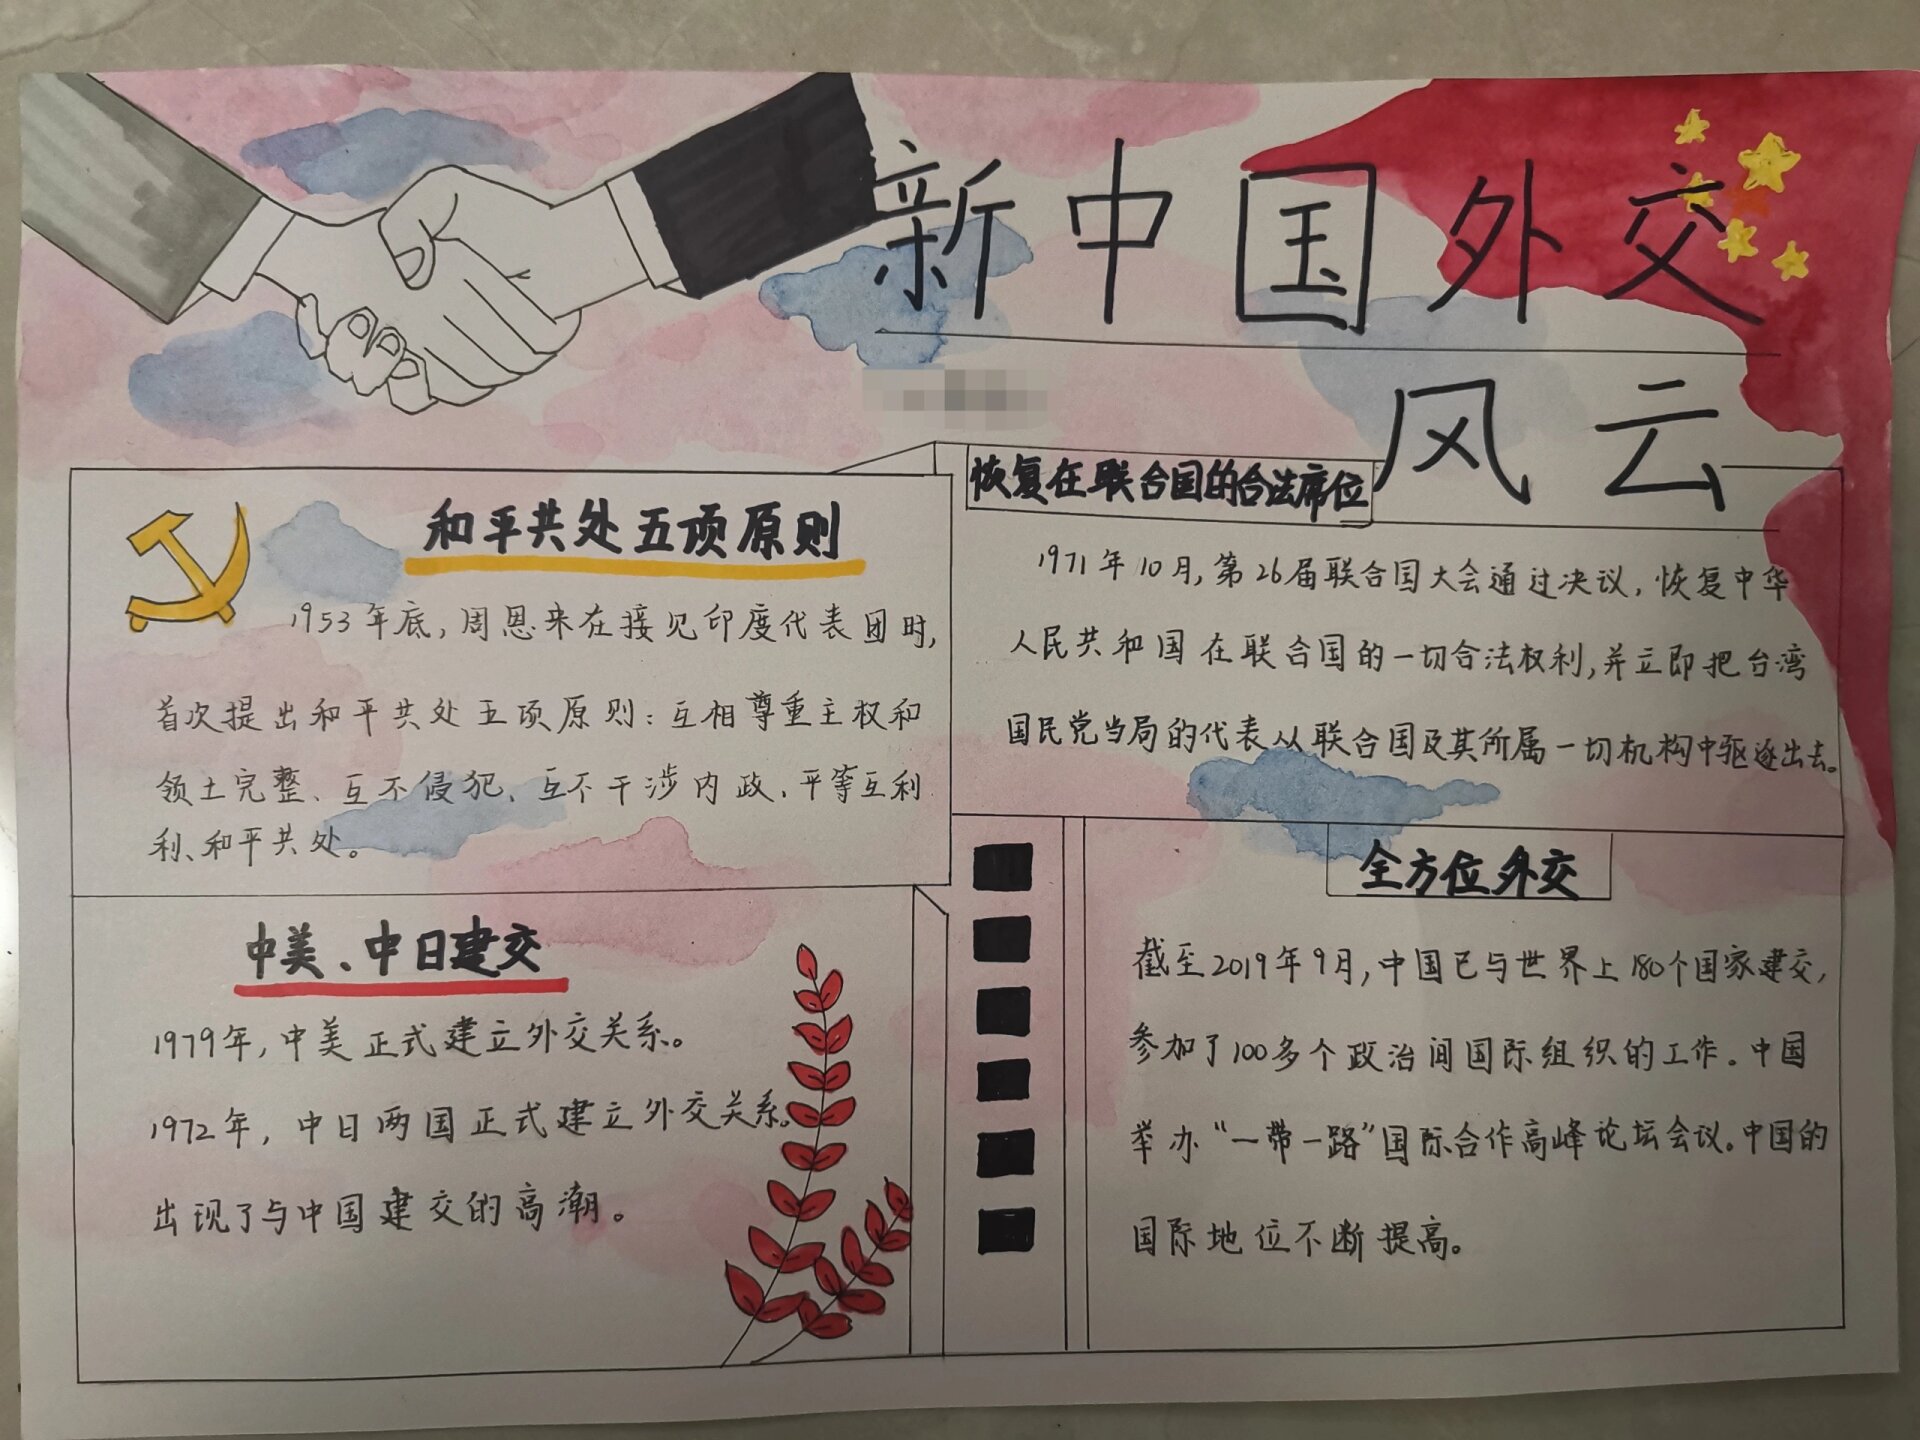 新中国外交
风云
和平共处五项原则
1953年底,周恩来在接见印度代表团时,
首次提出和平共处五项原则:互相尊重主权和
领土完整、互不侵犯、互不干涉内政、平等互利
利、和平共处。
恢复在联合国的合法席位
1971年10月,第26届联合国大会通过决议,恢复中华
人民共和国在联合国的一切合法权利,并立即把台湾
国民党当局的代表从联合国及其所属一切机构中驱逐出去。
中美、中日建交
1979年,中美正式建立外交关系。
1972年,中日两国正式建立外交关系。
出现了与中国建交的高潮。
全方位外交
截至2019年9月,中国已与世界上180个国家建交,
参加了100多个政治间国际组织的工作。中国
举办“一带一路”国际合作高峰论坛会议。中国的
国际地位不断提高。